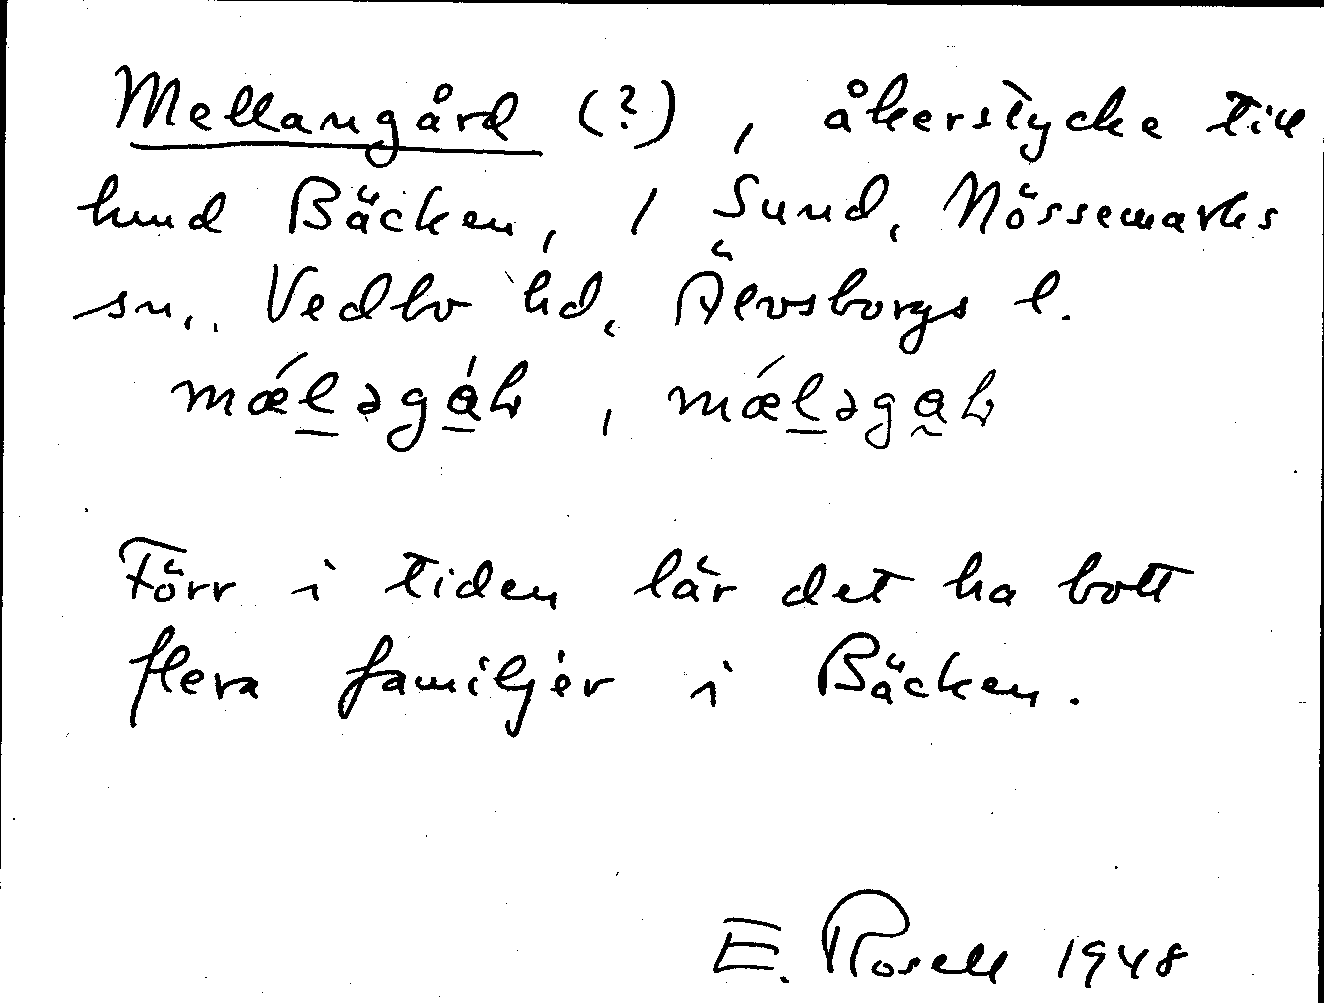 Mellangård (?), åkerstycke till
hmd Bäcken, 1 Sund, Nössemarks
sn, Vedbo hd, Älvsborgs l.
Förr i tiden lär det ha bott
flera familjer i Bäcken.
E. Rosell 1948